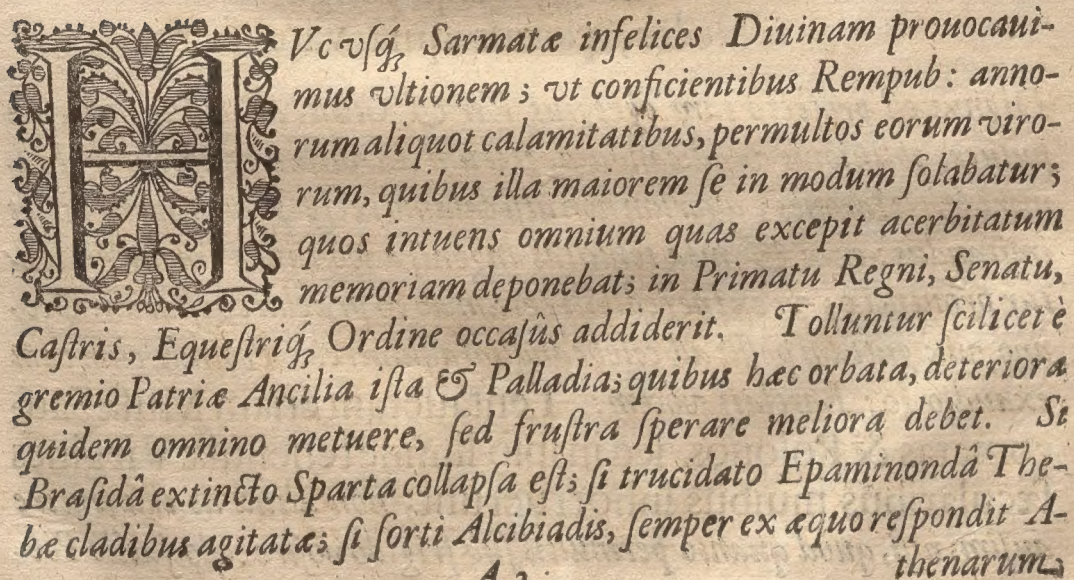 HVc vſq́ꝫ Sarmatæ infelices Diuinam prouocaui-
mus vltionem; vt conficientibus Rempub: anno-
rum aliquot calamitatibus, permultos eorum viro-
rum, quibus illa maiorem ſe in modum ſolabatur;
quos intuens omnium quas excepit acerbitatum
memoriam deponebat; in Primatu Regni, Senatu,
Caſtris, Equeſtriq́ꝫ Ordine occaſûs addiderit. Tolluntur ſcilicet è
gremio Patriæ Ancilia iſta & Palladia; quibus hæc orbata, deteriora
quidem omnino metuere, ſed fruſtra ſperare meliora debet. Si
Braſidâ extincto Sparta collapſa eſt; ſi trucidato Epaminondâ The-
bæ cladibus agitatæ; ſi ſorti Alcibiadis, ſemper ex æquo reſpondit A-
thenarum